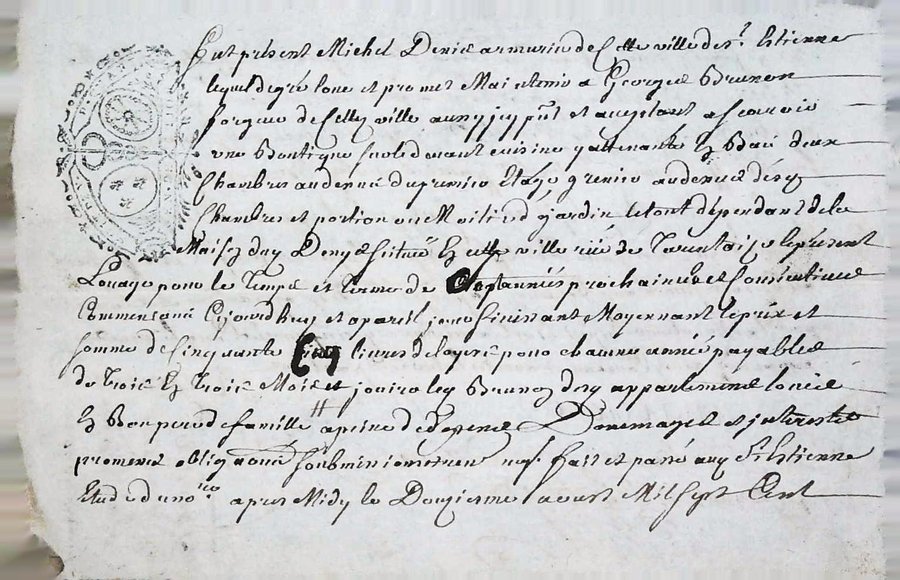 Fut présent Michel Denis armurier de Cette ville de st. Estienne
lequel de gré loue et promet Maintenir a George Brunon
forgeur de Cette ville aussy icy pnt et acceptant a scavoir
une Boutique sur le devant cuisine y attenante Et Bas deux
Chambres au dessus du premier Etage grenier au dessus desd
Chambres et portion ou Moitié du jardin le tout dépendant de la
Maison dud Denys Scituée En cette ville rüe de Tarentaise le présent
Louage pour le Temps et terme de années prochaines et Consecutives
Commencant Cejourdhuy et a pareil jour finissant Moyennant le prix et
somme de Cinquante Cinq livres de loyers pour chacune année payables
de Trois En Trois Mois et jouira led Brunon desd appartements loués
En Bon pere de famille # a peine de Depens Dommages et interests
promet obligaons soubmin renon fait et passé aud St Estienne
Etude du nore apres Midy le Douzieme aoust Mil sept Cent